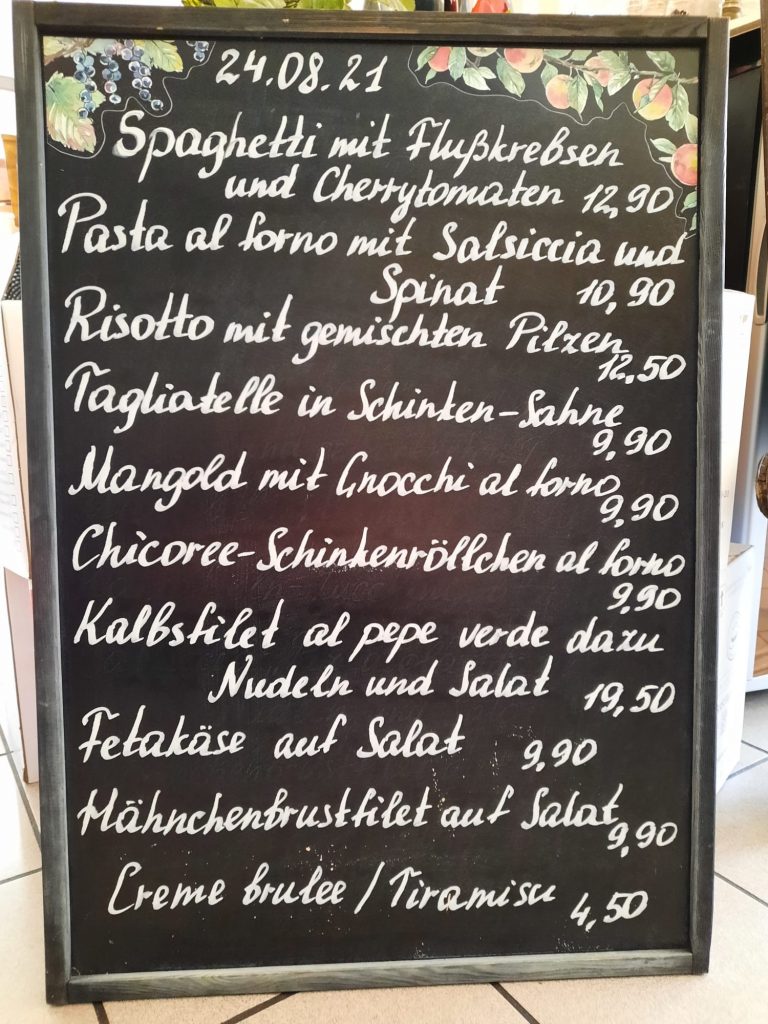 24.08.21
Spaghetti mit Flußkrebsen
und Cherrytomaten 12,90
Pasta al forno mit Salsiccia und
Spinat 10,90
Risotto mit gemischten Pilzen
12.50
Tagliatelle in Schinken-Sahne
9,90
Mangold mit Gnocchi al forno
9,90
Chicoree-Schinkenröllchen al forno
9,90
Kalbsfilet al pepe verde dazu
Nudeln und Salat 19,50
Fetakäse auf Salat 9,90
Hähnchenbrustfilet auf Salat
9,90
Creme brulee / Tiramisu 4,50